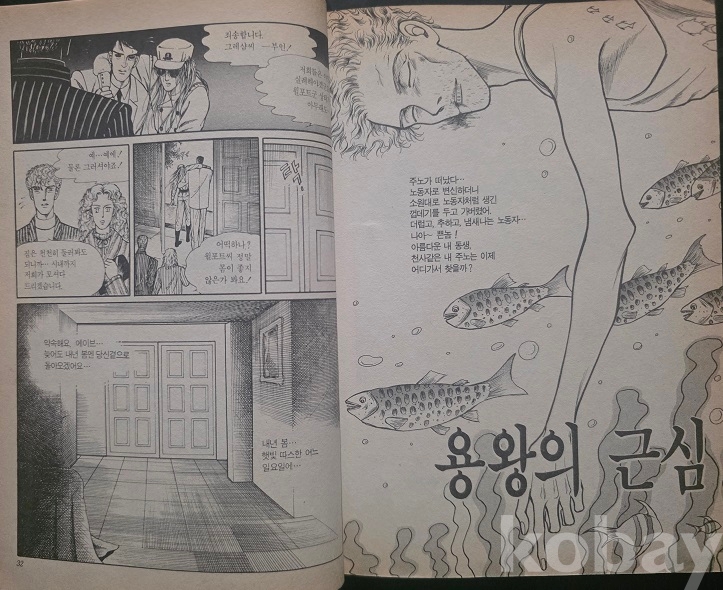 죄송합니다.
그레샴씨 ─부인!
저희들은
예…예에!
물론 그러셔야죠!
길은 천천히 둘러봐도
되니까… 시내까지
저희가 모셔다
드리겠습니다.
어떡하나?
윌포트씨 정말
몸이 좋지
않은가 봐요!
약속해요, 에이브…
늦어도 내년 봄엔 당신곁으로
돌아오겠어요…
내년 봄…
햇빛 따스한 어느
일요일에…
32
주노가 떠났다…
노동자로 변신하더니
소원대로 노동자처럼 생긴
껍데기를 두고 가버렸어.
더럽고, 추하고, 냄새나는 노동자…
나아~ 쁜놈!
아름다운 내 동생,
천사같은 내 주노는 이제
어디가서 찾을까?
용왕의 근심
kobay